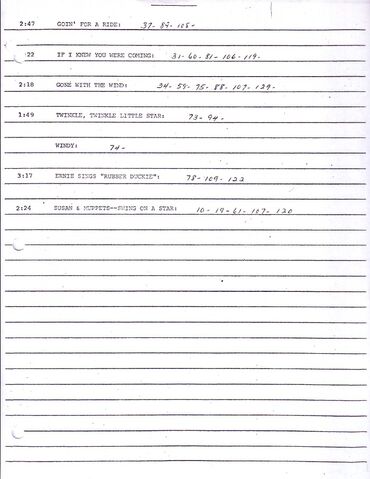 2:47 GOIN' FOR A RIDE: 37- 89- 108-
22 IF I KNEW YOU WERE COMING: 31-60-81-106-119-
2:18 GONE WITH THE WIND: 34-59-75-88-107-129-
1:49 TWINKLE, TWINKLE LITTLE STAR: 73-94-
WINDY: 74-
3:17 ERNIE SINGS "RUBBER DUCKIE": 78-109-122
2:24 SUSAN & MUPPETS--SWING ON A STAR: 10-19-61-107-120